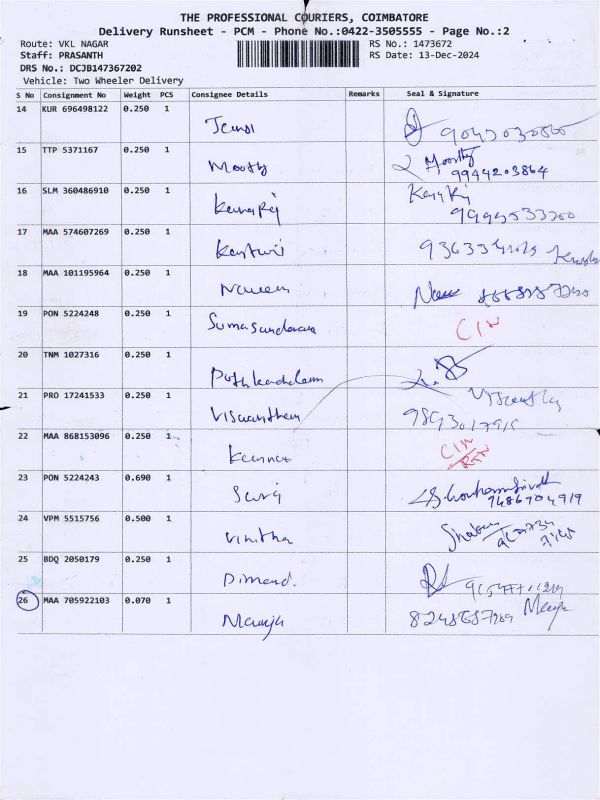 THE PROFESSIONAL COURIERS, COIMBATORE
Delivery Runsheet - PCM - Phone No.:0422-3505555 - Page No.:2
Route: VKL NAGAR
Staff: PRASANTH
DRS No.: DCJB147367202
Vehicle: Two Wheeler Delivery
RS No.: 1473672
RS Date: 13-Dec-2024
S No Consignment No Weight PCS Consignee Details Remarks Seal & Signature
14 KUR 696498122 0.250 1
15 TTP 5371167 0.250 1 Moorthy Moorthy
9944203864
16 SLM 360486910 0.250 1 Kanaraj
17 MAA 574607269 0.250 1
18 MAA 101195964 0.250 1 Naveen
19 PON 5224248 0.250 1 Sumasundaram CIN
20 TNM 1027316 0.250 1
21 PRO 17241533 0.250 1 Viswanthan
22 MAA 868153096 0.250 1 Kannan CIN
RTN
23 PON 5224243 0.690 1 Suraj
9486904919
24 VPM 5515756 0.500 1 Vinitha
25 BDQ 2050179 0.250 1 Dimend.
26 MAA 705922103 0.070 1 Manju Manju